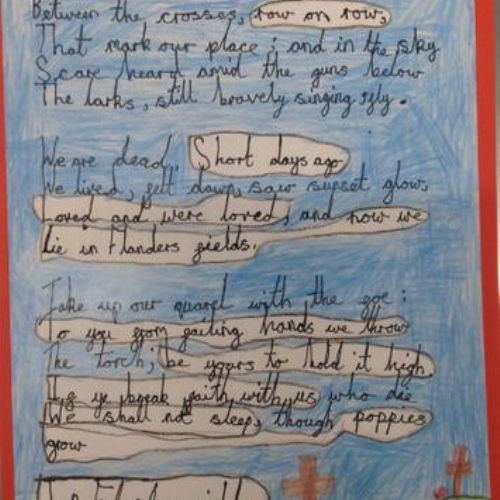 Between the crosses, row on row,
That mark our place; and in the sky
Scare heard amid the guns below
The larks, still bravely singing fly.
We are dead. Short days ago
We lived, felt dawn, saw sunset glow,
Loved and were loved, and now we
lie in Flanders fields.
Take up our quarel with the foe:
To you from failing hands we throw
The torch; be yours to hold it high
If ye break faith with us who die
We shall not sleep, though poppies
grow